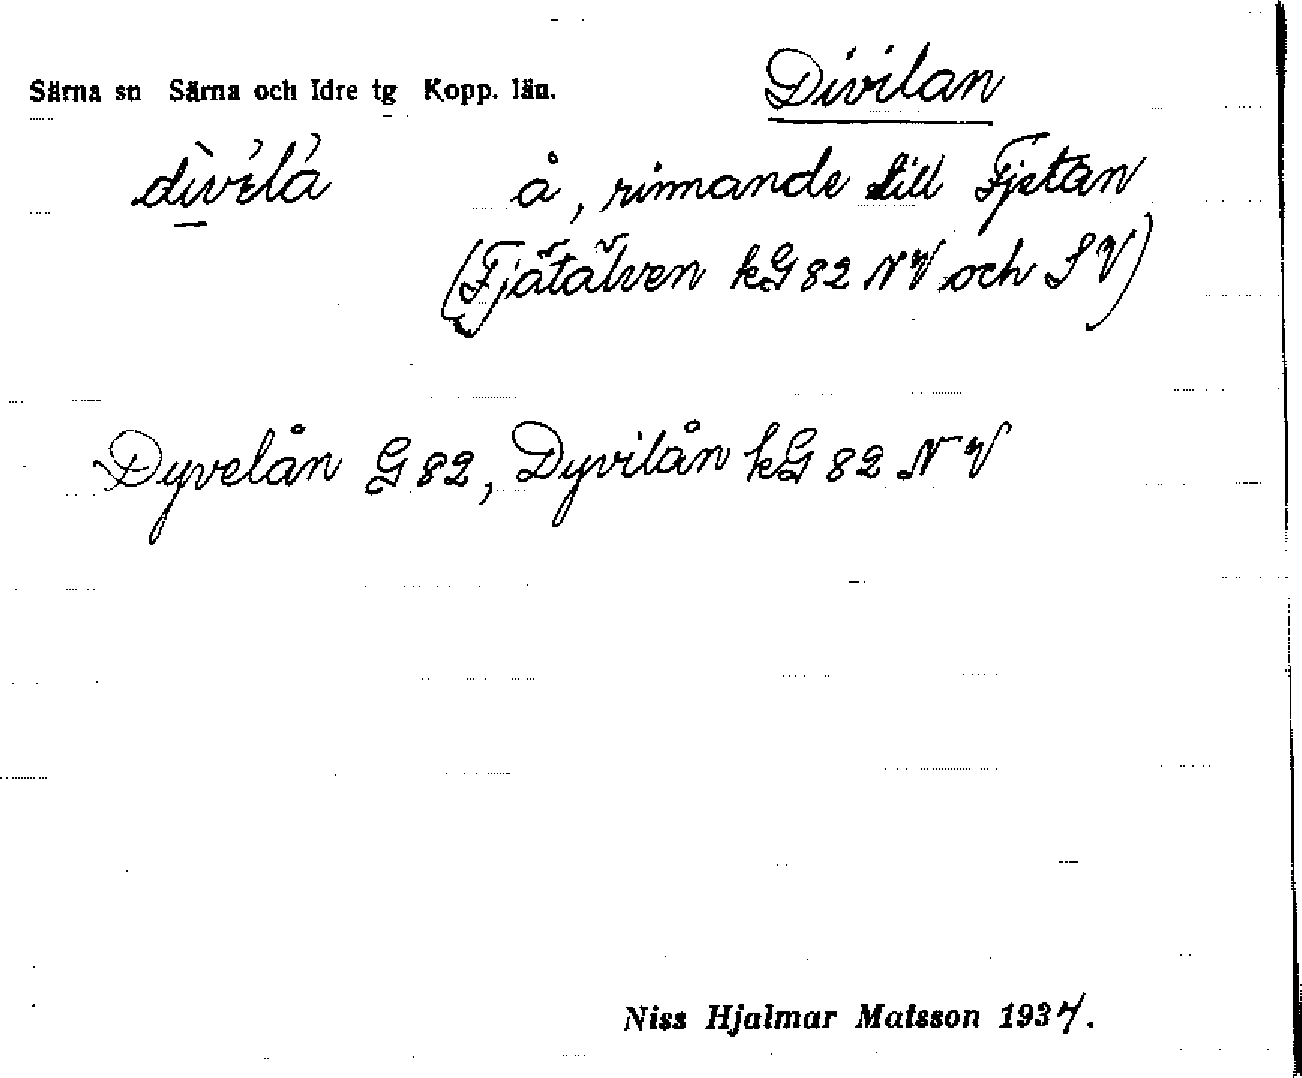 Särna sn Särna och Idre tg Kopp. län.
Divilan
å, rinnande till Fjetan
(Fjätälven kG 82 NV och SV)
Dyvelån G 82, Dyvilån kG 82 NV
Niss Hjalmar Matsson 1937.